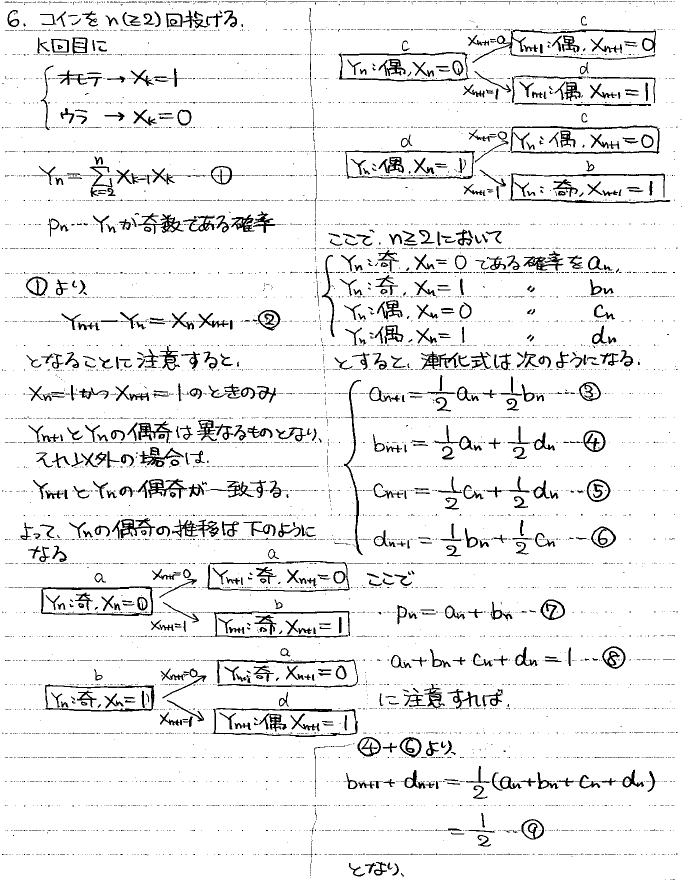 6. コインをn(≥2)回投げる.
K回目に
オモテ → Xk=1
ウラ → Xk=0
Yn = Σ[k=2→n] Xk-1Xk …①
pn … Ynが奇数である確率
①より
Yn+1−Yn = XnXn+1 …②
となることに注意すると、
Xn=1かつXn+1=1のときのみ
Yn+1とYnの偶奇は異なるものとなり、
それ以外の場合は、
Yn+1とYnの偶奇が一致する.
よって、Ynの偶奇の推移は下のように
なる
a
Yn:奇, Xn=0
Xn+1=0
a
Yn+1:奇, Xn+1=0
Xn+1=1
b
Yn+1:奇, Xn+1=1
b
Yn:奇, Xn=1
Xn+1=0
a
Yn:奇, Xn+1=0
Xn+1=1
d
Yn+1:偶 Xn+1=1
c
Yn:偶, Xn=0
Xn+1=0
c
Yn+1:偶, Xn+1=0
Xn+1=1
d
Yn+1:偶 Xn+1=1
d
Yn:偶, Xn=1
Xn+1=0
c
Yn:偶, Xn+1=0
Xn+1=1
b
Yn:奇, Xn+1=1
ここで、n≥2において
Yn:奇, Xn=0 である確率をan,
Yn:奇, Xn=1 〃 bn
Yn:偶, Xn=0 〃 cn
Yn:偶, Xn=1 〃 dn
とすると、漸化式は次のようになる.
an+1 = 1/2 an + 1/2 bn …③
bn+1 = 1/2 an + 1/2 dn …④
cn+1 = 1/2 cn + 1/2 dn …⑤
dn+1 = 1/2 bn + 1/2 cn …⑥
ここで
pn = an + bn …⑦
an+bn+cn+dn = 1 …⑧
に注意すれば、
④+⑥より、
bn+1 + dn+1 = 1/2 (an+bn+cn+dn)
= 1/2 …⑨
となり、